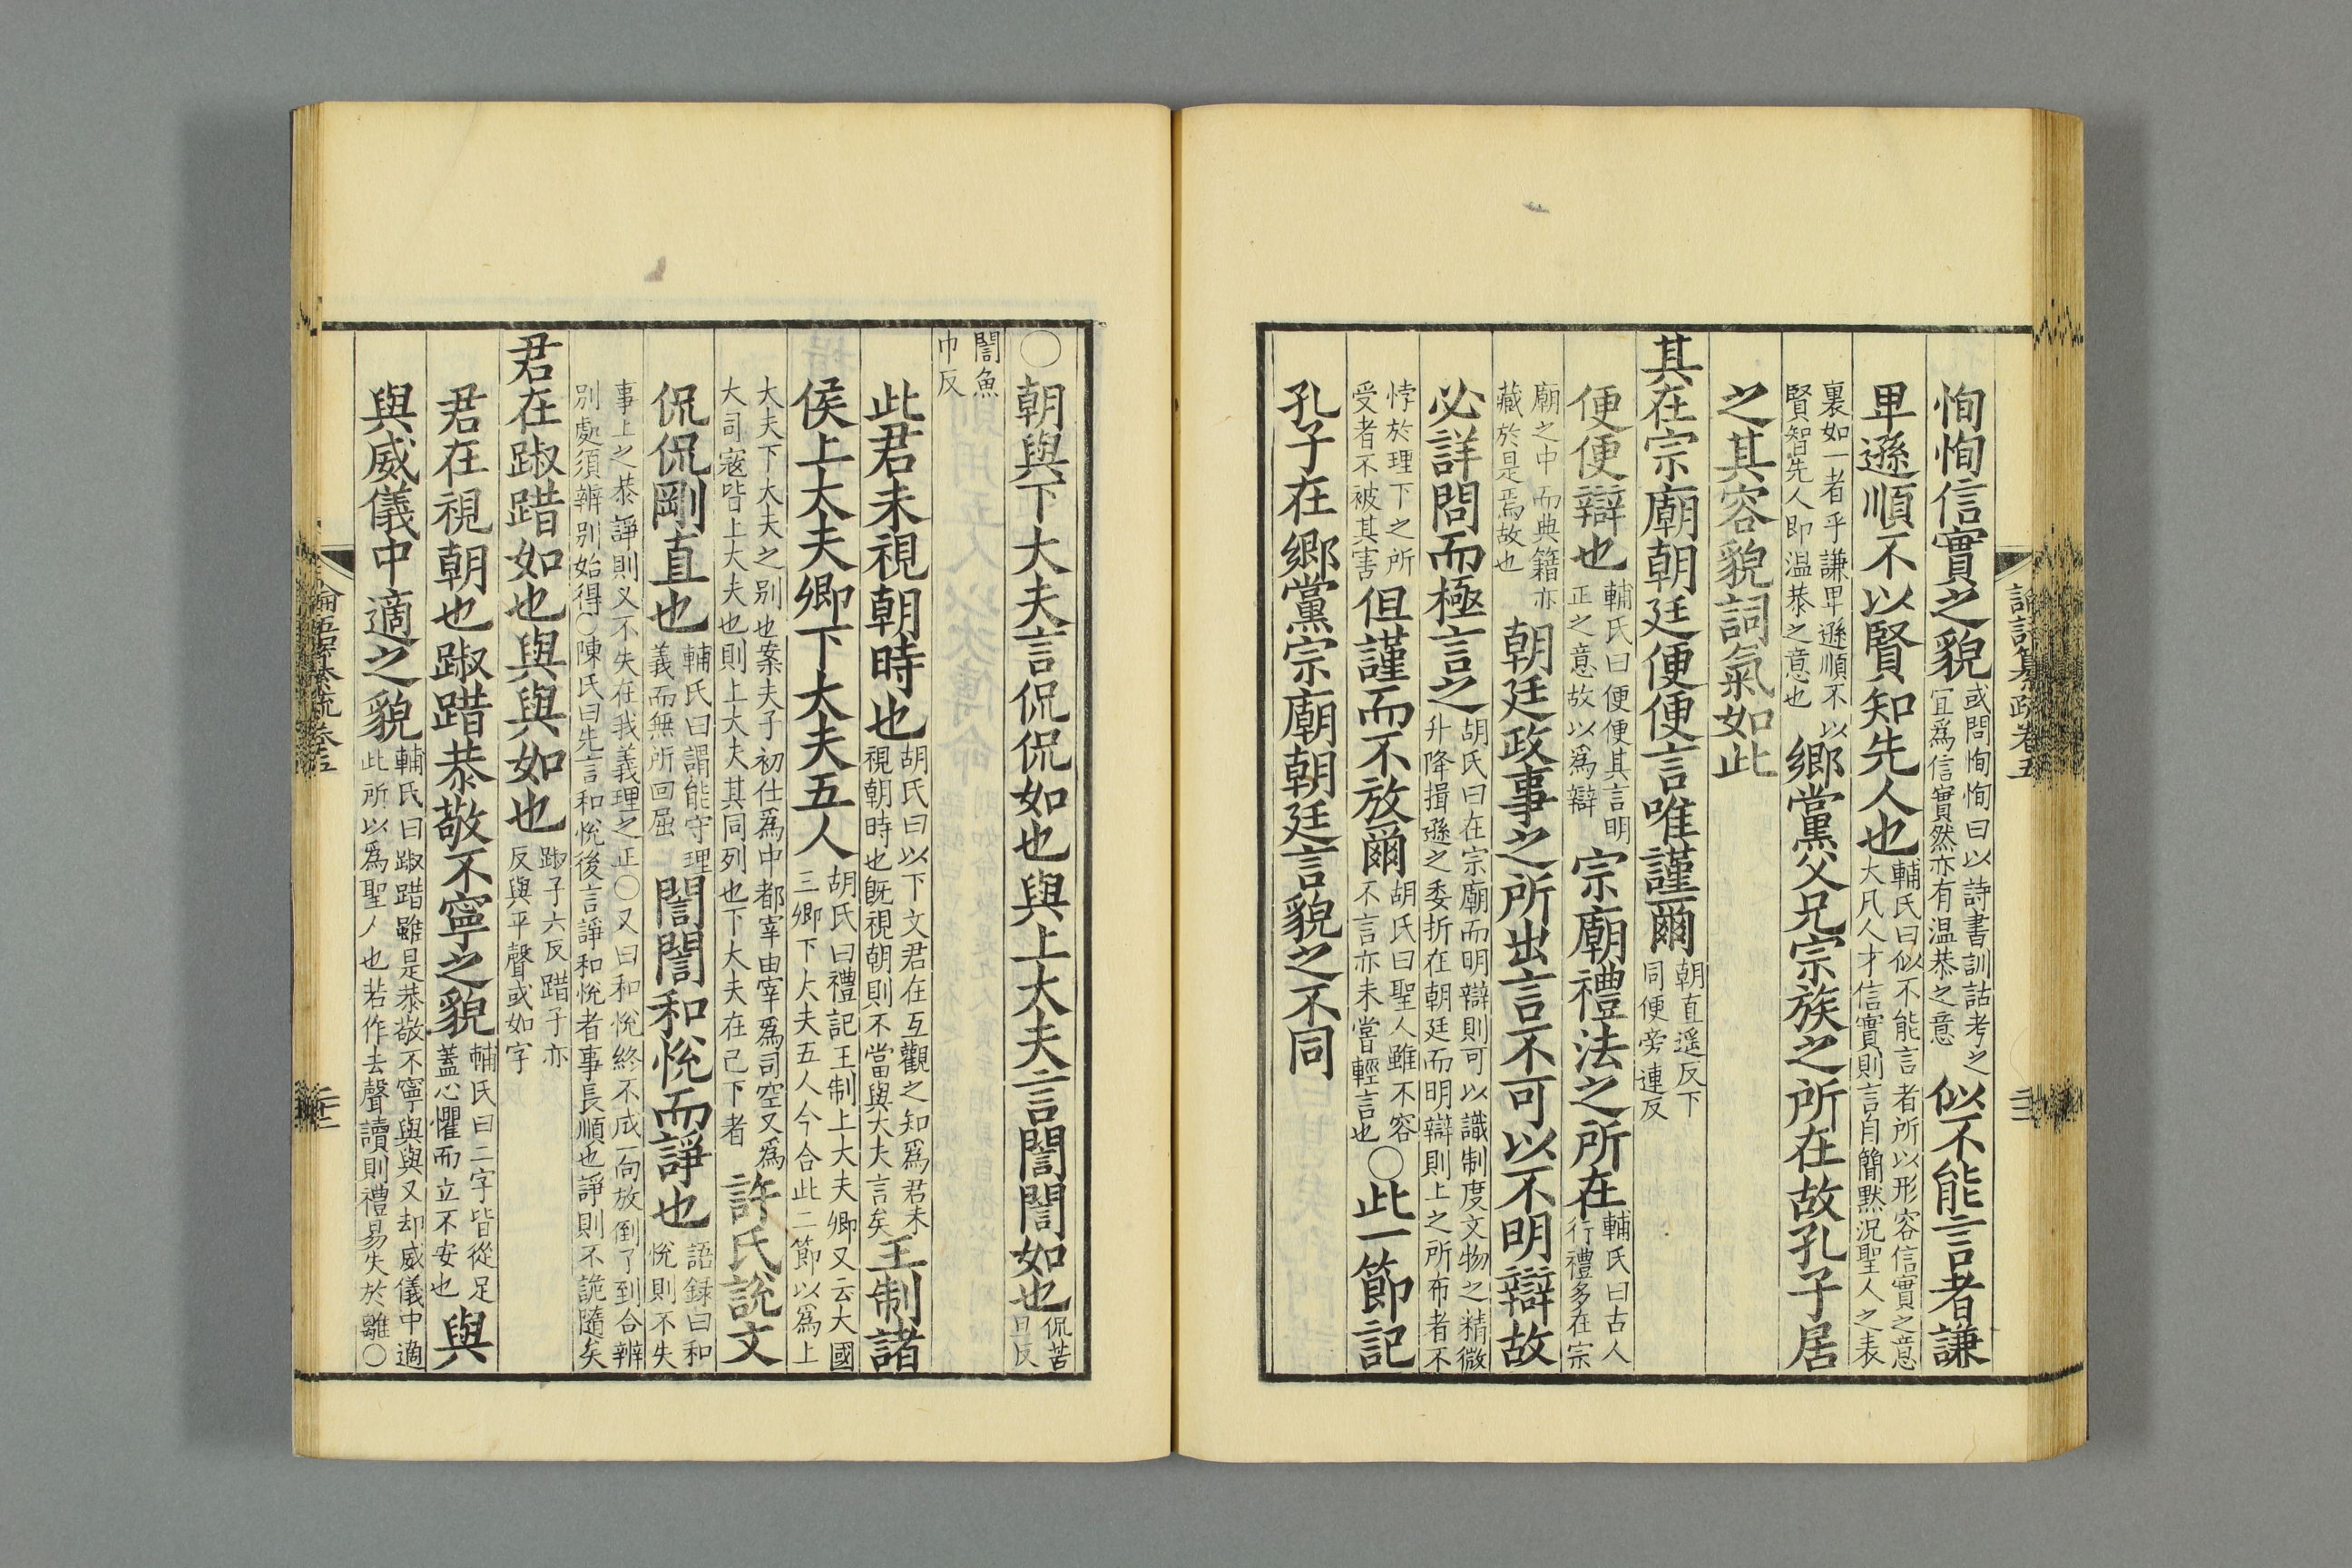 恂恂信實之貌或問恂恂曰以詩書訓詁考之宜爲信實然亦有温恭之意似不能言者謙
卑遜順不以賢知先人也輔氏曰似不能言者所以形容信實之意大凡人才信實則言自簡黙况聖人之表
裏如一者乎謙卑遜順不以賢智先人即温恭之意也鄉黨父兄宗族之所在故孔子居
之其容貌詞氣如此
其在宗廟朝廷便便言唯謹爾朝直遥反下同便旁連反
便便辯也輔氏曰便便其言明正之意故以爲辯宗廟禮法之所在輔氏曰古人行禮多在宗
廟之中而典籍亦藏於是焉故也朝廷政事之所出言不可以不明辯故
必詳問而極言之胡氏曰在宗廟而明辯則可以識制度文物之精微升降揖遜之委折在朝廷而明辯則上之所布者不
悖於理下之所受者不被其害但謹而不放爾胡氏曰聖人雖不容不言亦未嘗輕言也○此一節記
孔子在鄉黨宗廟朝廷言貌之不同
○朝與下大夫言侃侃如也與上大夫言誾誾如也侃苦旦反
誾魚巾反
此君未視朝時也胡氏曰以下文君在互觀之知爲君未視朝時也旣視朝則不當與大夫言矣王制諸
侯上大夫卿下大夫五人胡氏曰禮記王制上大夫卿又云大國三卿下大夫五人今合此二節以爲上
大夫下大夫之别也案夫子初仕爲中都宰由宰爲司空又爲大司寇皆上大夫也則上大夫其同列也下大夫在己下者許氏說文
侃侃剛直也輔氏曰謂能守理義而無所回屈誾誾和悅而諍也語録曰和悅則不失
事上之恭諍則又不失在我義理之正○又曰和悅終不成一向放倒了到合辨别處須辨别始得○陳氏曰先言和悅後言諍和悅者事長順也諍則不詭隨矣
君在踧踖如也與與如也踧子六反踖子亦反與平聲或如字
君在視朝也踧踖恭敬不寧之貌輔氏曰二字皆從足蓋心懼而立不安也與
與威儀中適之貌輔氏曰踧踖雖是恭敬不寧與與又却威儀中適此所以爲聖人也若作去聲讀則禮易失於離○